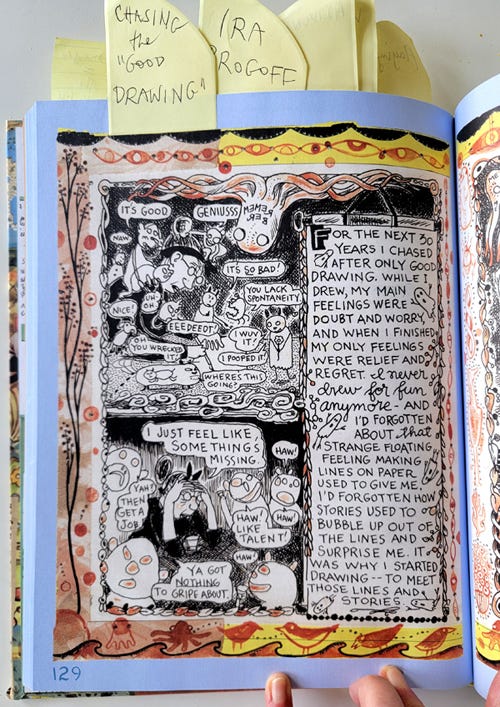 CHASING
the
"GOOD
DRAWING"
IRA
PROGOFF
IT'S GOOD
GENIUSSS
REMEM
BER
NAW
IT'S SO BAD!
YOU LACK
SPONTANEITY.
NICE!
UH-
OH.
EEEDEEDT
I WUV
IT!
YOU WRECKED
IT.
I POOPED IT
WHERE'S THIS
GOING?
I JUST FEEL LIKE
SOMETHING'S
MISSING.
HAW!
YAH?
THEN
GET A
JOB.
HAW!
LIKE
TALENT!
HAW
HAW
YA GOT
NOTHING
TO GRIPE ABOUT.
FOR THE NEXT 30
YEARS I CHASED
AFTER ONLY GOOD
DRAWING. WHILE I
DREW, MY MAIN
FEELINGS WERE
DOUBT AND WORRY
AND WHEN I FINISHED
MY ONLY FEELINGS
WERE RELIEF AND
REGRET. I never
drew for fun
anymore - AND
I'D FORGOTTEN
ABOUT that
STRANGE FLOATING
FEELING MAKING
LINES ON PAPER
USED TO GIVE ME.
I'D FORGOTTEN HOW
STORIES USED TO
BUBBLE UP OUT OF
THE LINES AND
SURPRISE ME. IT
WAS WHY I STARTED
DRAWING -- TO MEET
THOSE LINES AND
STORIES.
129